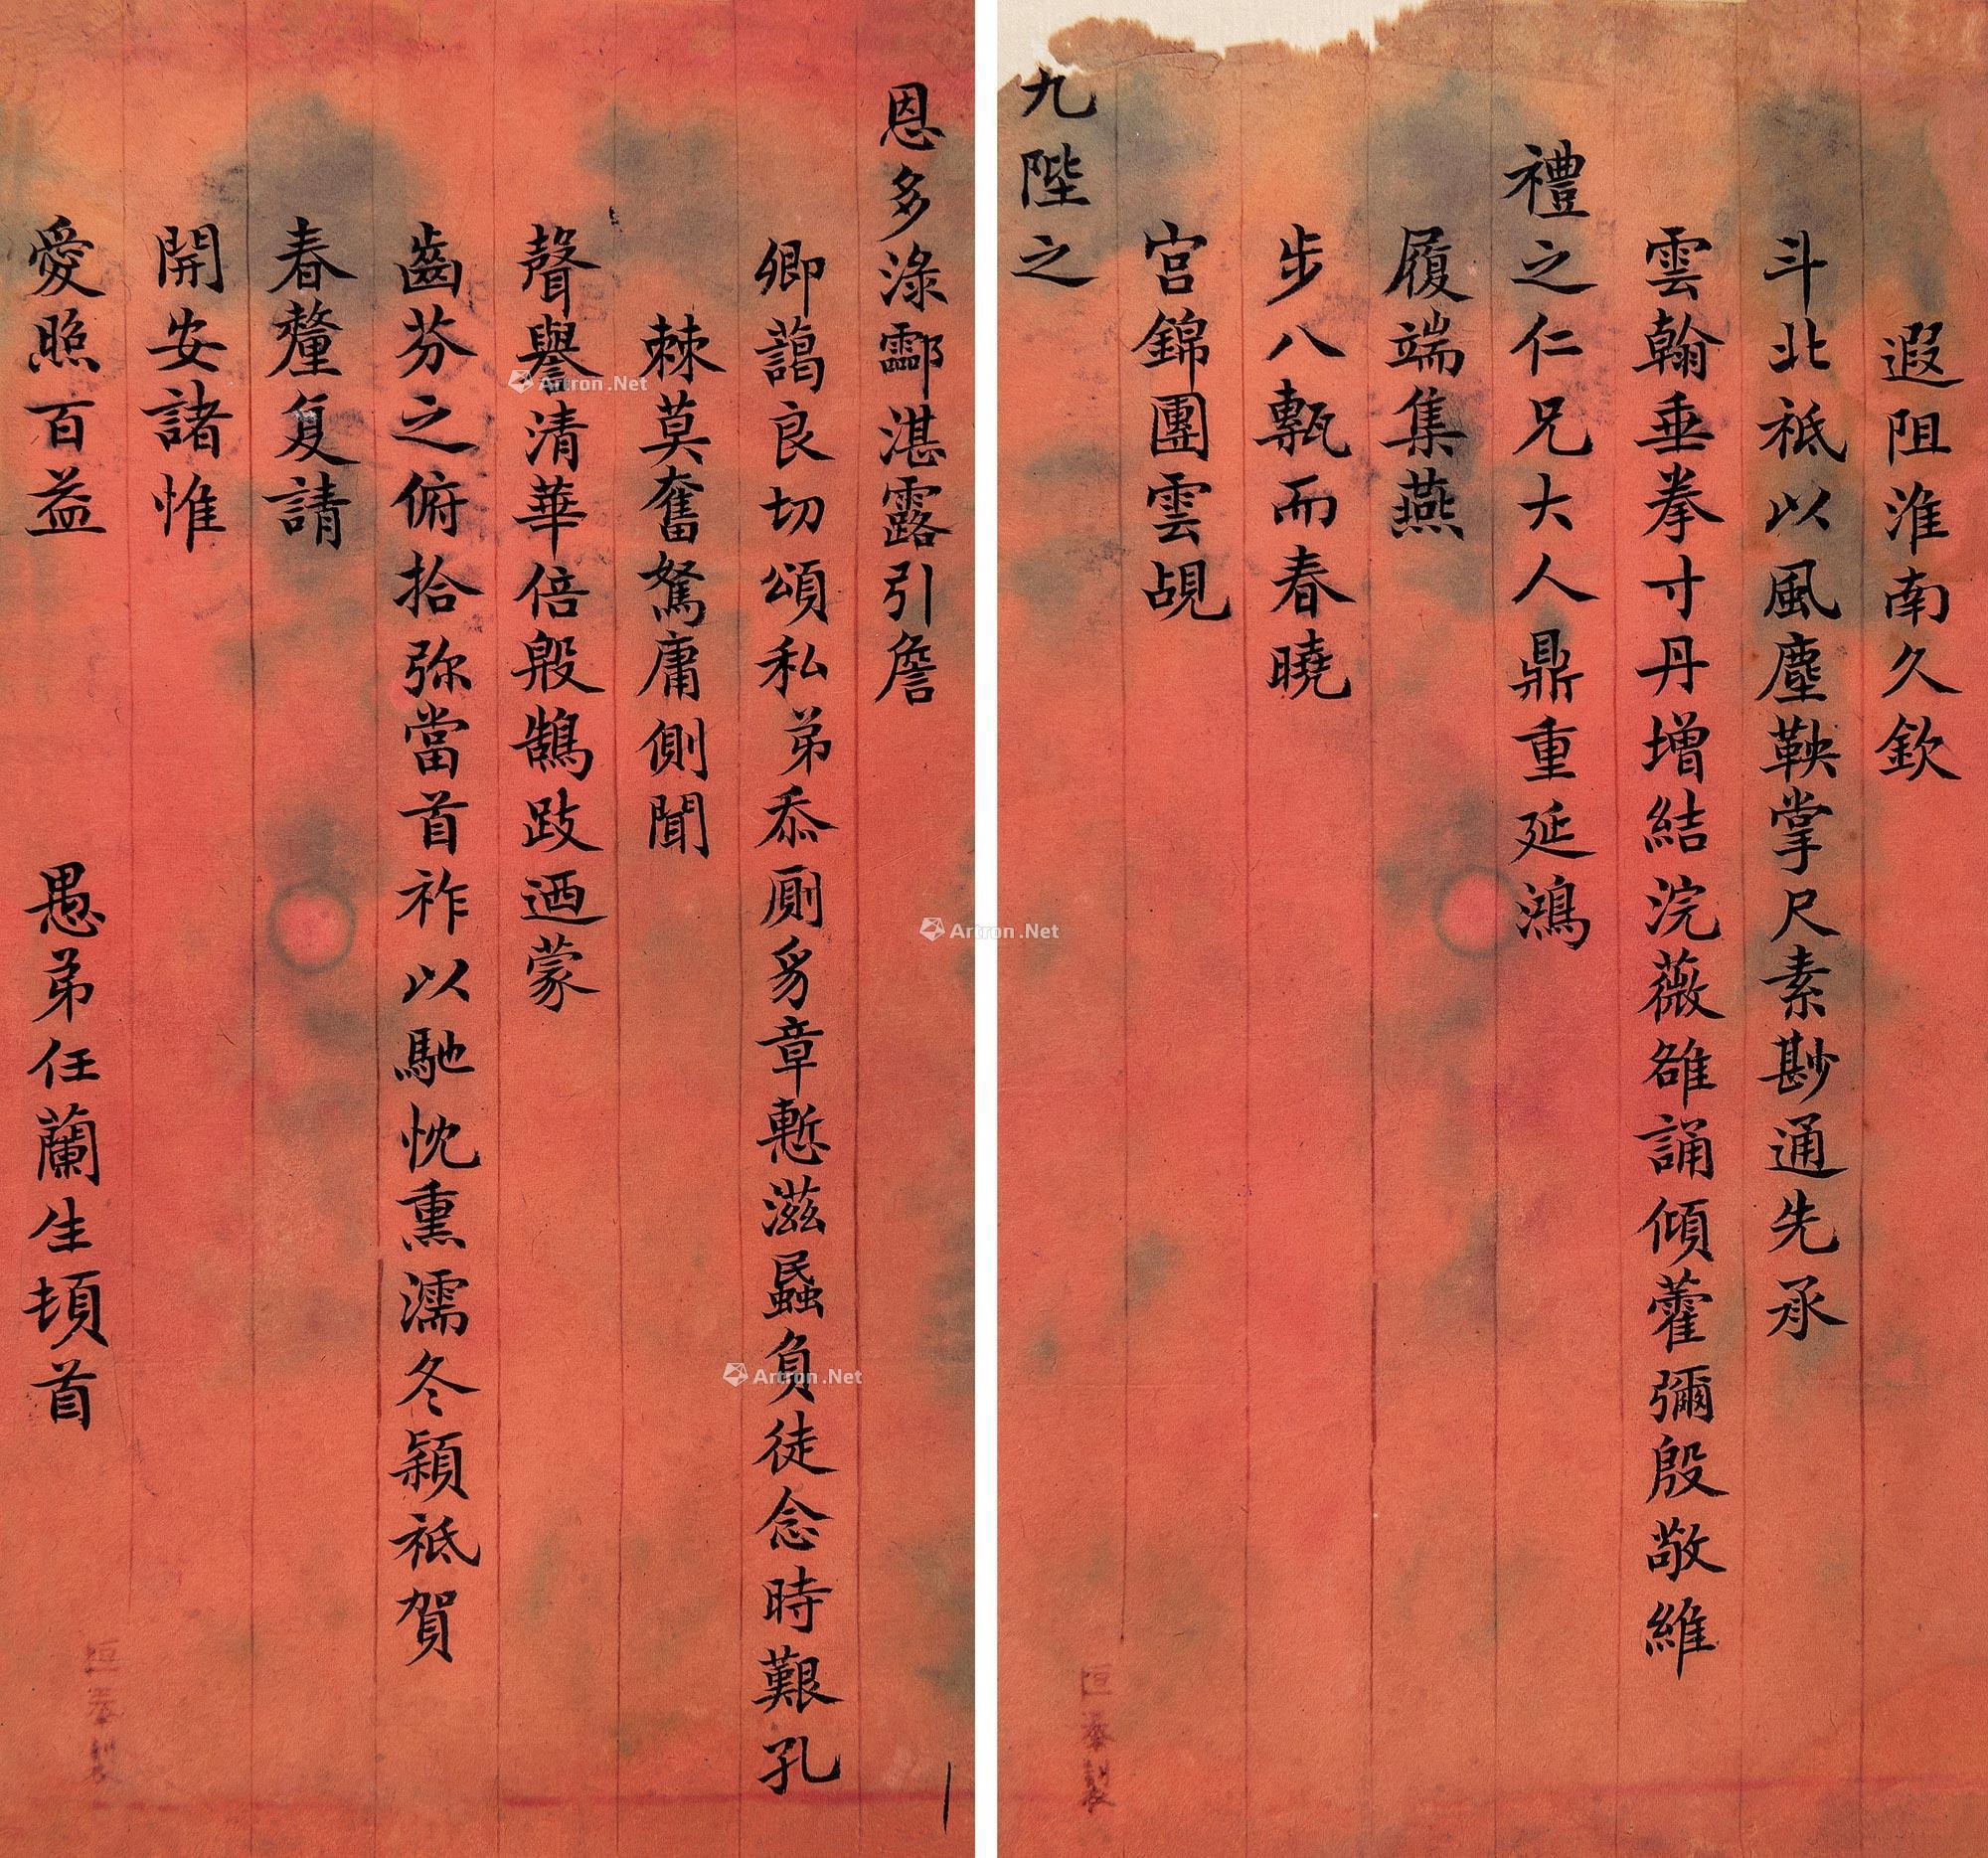 遐阻淮南久欽
斗北祗以風塵鞅掌尺素尠通先承
雲翰垂拳寸丹增結浣薇雒誦傾藿彌殷敬維
禮之仁兄大人鼎重延鴻
履端集燕
步八甎而春曉
宮錦團雲覘
九陛之
恩多淥酃湛露引詹
卿藹良切頌私弟忝廁豸章慙滋蝨負徒念時艱孔
棘莫奮駑庸側聞
聲譽清華倍殷鵠跂迺蒙
齒芬之俯拾弥當首祚以馳忱熏濡冬穎祗賀
春釐复請
開安諸惟
愛照百益
愚弟任蘭生頓首
Artron.Net
Artron.Net
Artron.Net